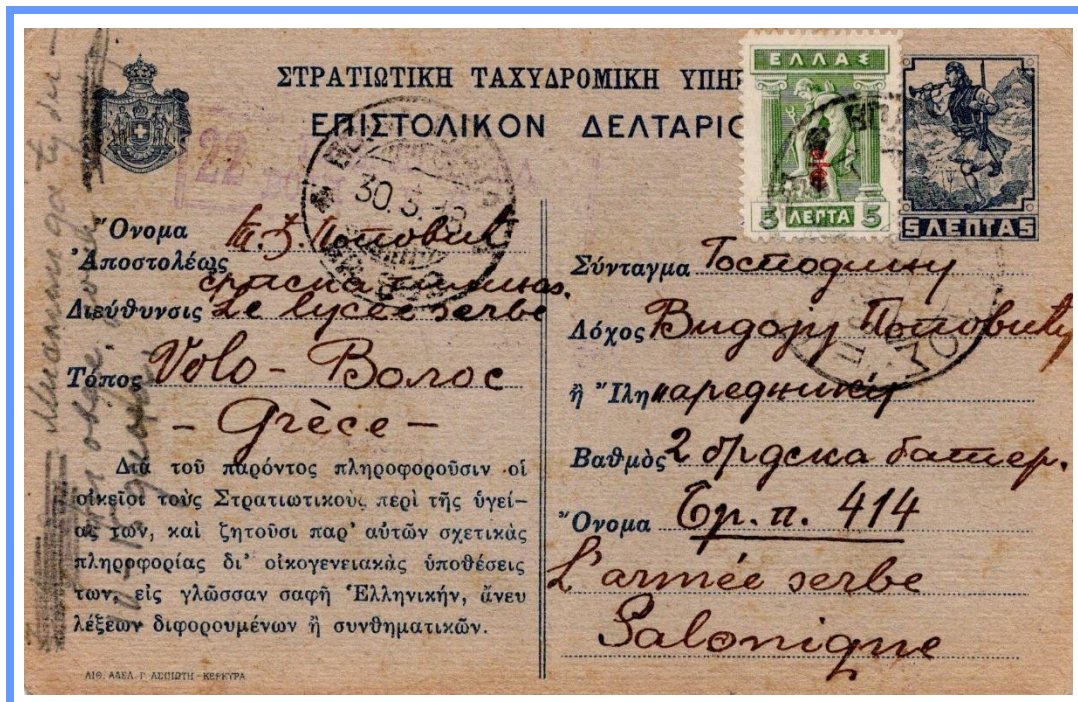 ΣΤΡΑΤΙΩΤΙΚΗ ΤΑΧΥΔΡΟΜΙΚΗ ΥΠΗΡ
ΕΠΙΣΤΟΛΙΚΟΝ ΔΕΛΤΑΡΙΟ
ΕΛΛΑΣ
5 ΛΕΠΤΑ 5
5 ΛΕΠΤΑ 5
22
30.3.18
Ὄνομα Поповић
Ἀποστολέως српска
Διεύθυνσις Le lycée serbe
Τόπος Volo - Волос
- Grèce -
Διὰ τοῦ παρόντος πληροφοροῦσιν οἱ
οἰκεῖοι τοὺς Στρατιωτικοὺς περὶ τῆς ὑγεί-
ας των, καὶ ζητοῦσι παρ' αὐτῶν σχετικὰς
πληροφορίας δι' οἰκογενειακὰς ὑποθέσεις
των, εἰς γλῶσσαν σαφῆ Ἑλληνικήν, ἄνευ
λέξεων διφορουμένων ἢ συνθηματικῶν.
ΛΙΘ. ΑΔΕΛ. Γ. ΑΣΠΙΩΤΗ - ΚΕΡΚΥΡΑ
Σύνταγμα Господину
Λόχος Видоју Поповићу
ἢ Ἴλη нареднику
Βαθμὸς 2 брдска батер.
Ὄνομα Бр. п. 414
L'armée serbe
Salonique